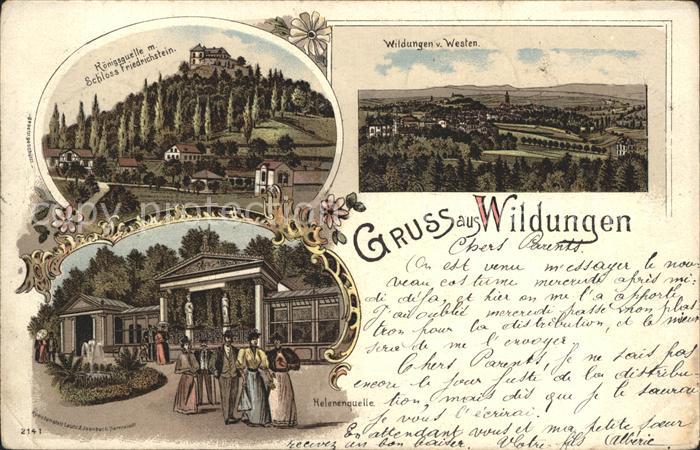 Königsquelle m.
Schloss Friedrichstein.
Wildungen v. Westen.
GRUSS aus Wildungen
Chers Parents.
(On est venu m'essayer le nou-
veau costume mercredi après mi-
di difa, et hier on me l'a apporté
J'ai oublié mercredi passé mon plas
tron pour la distribution, et le mieux
sera de me l'envoyer.
Chers Parents je ne sais pas
encore le jour juste de la distribu-
tion, mais dès que je le saurai
je vous l'écrirai.
En attendant vous et ma petite sœur
recevez un bon baiser. Votre fils Albéric
Helenenquelle.
2141